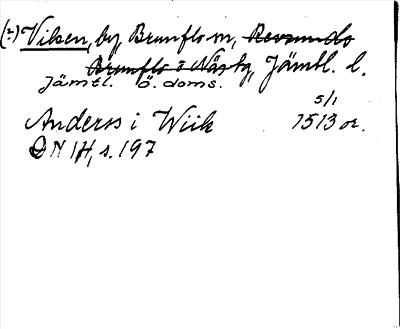 (?) Viken, by, Brunflo sn, Revsunds
Brunflo o Näs tg, Jämtl. l.
Jämtl. Ö. doms.
5/1
Anders i Wiik 1513 or.
DN 14, s. 197